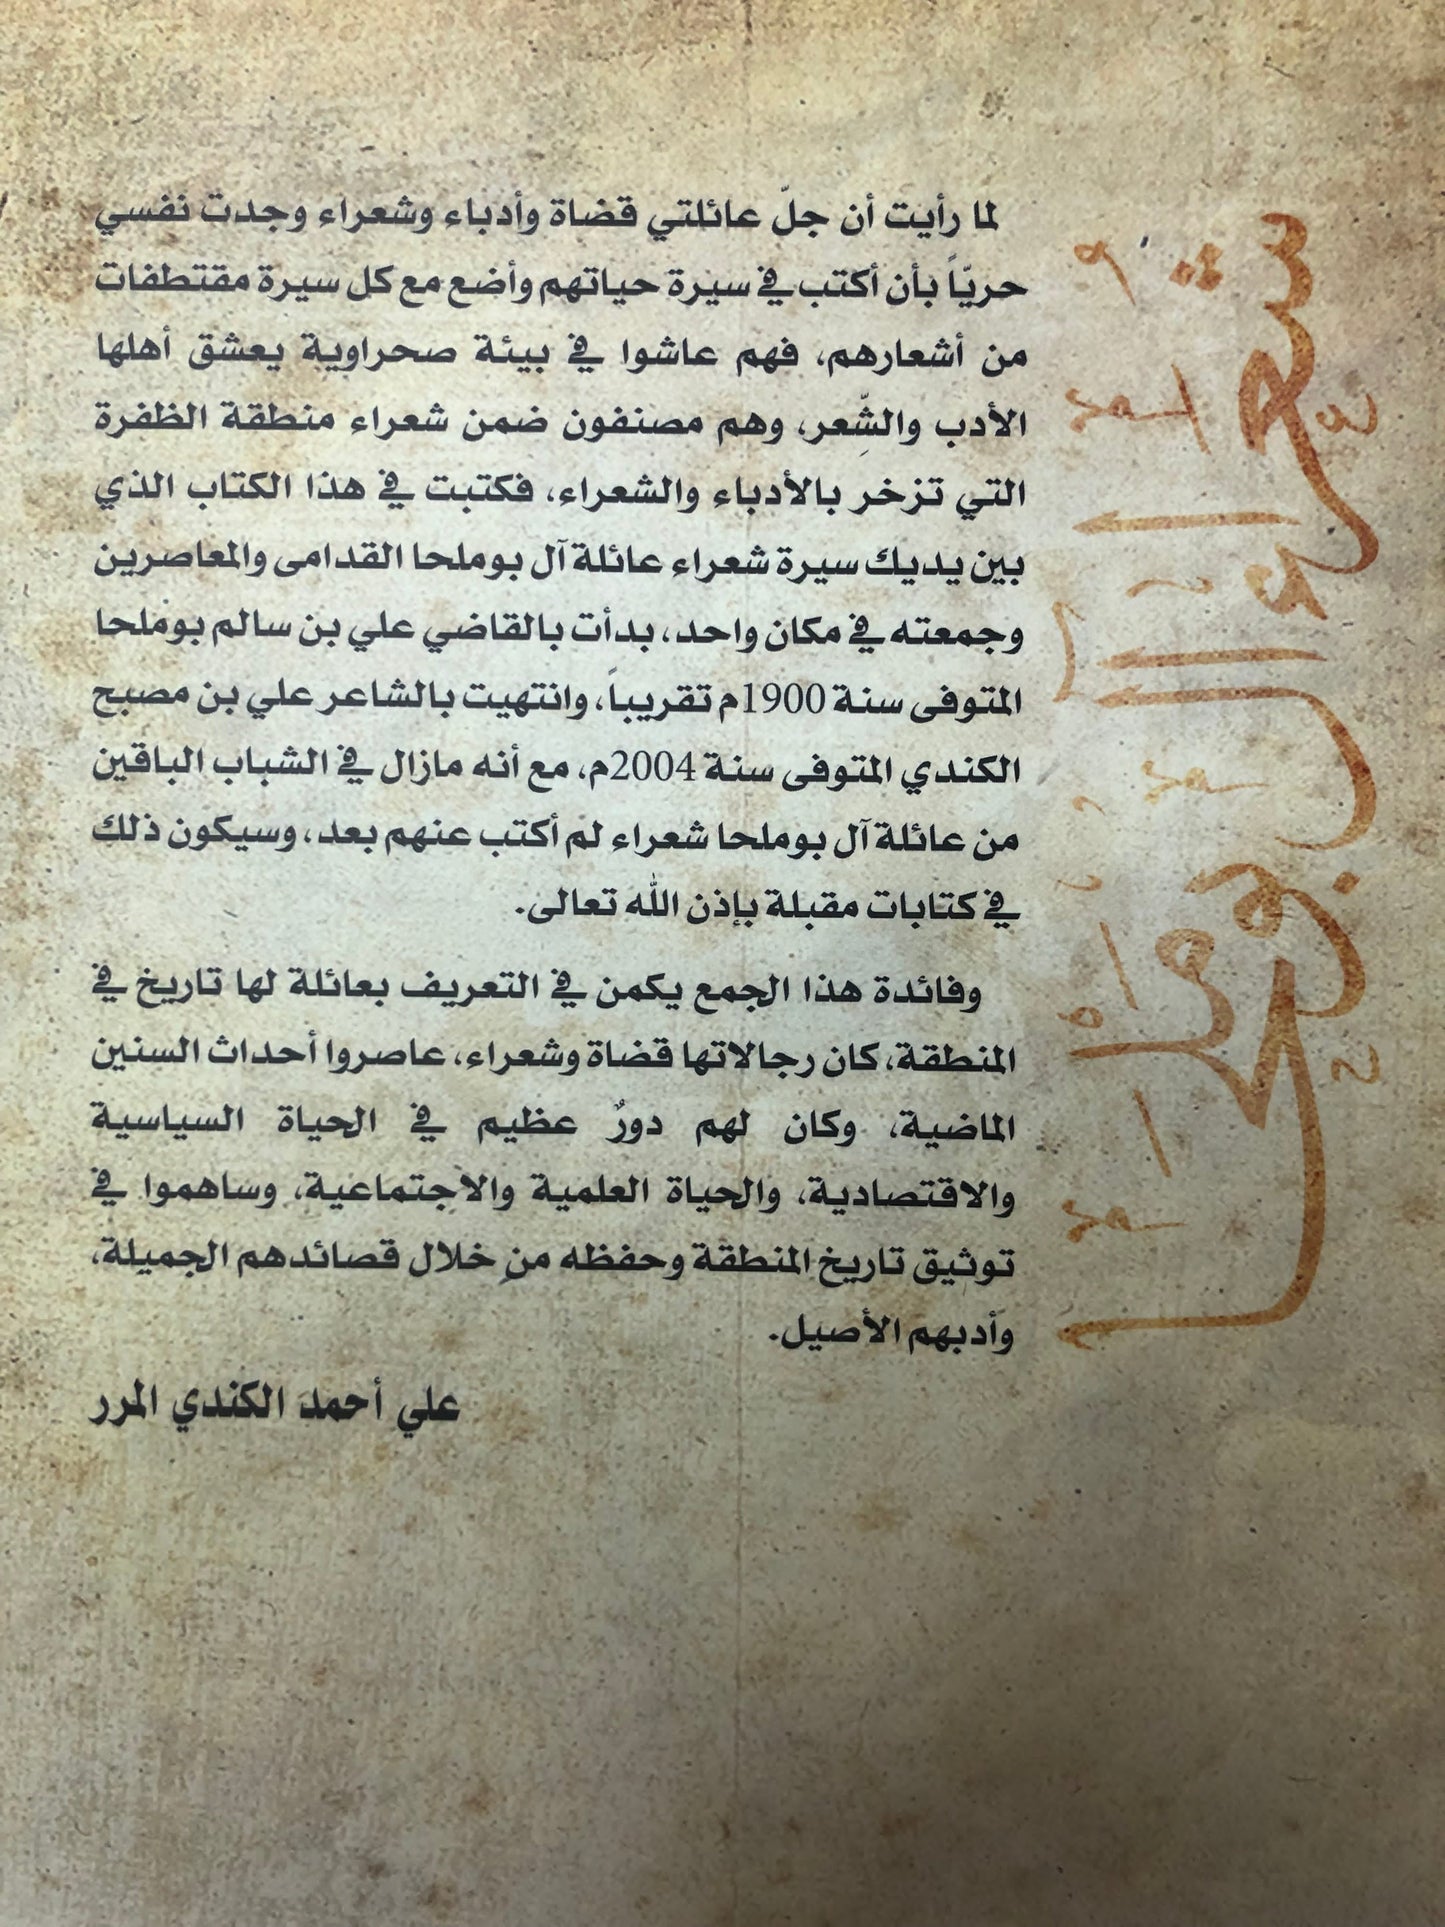 شعراء آل بوملحا
لما رأيت أن جلّ عائلتي قضاة وأدباء وشعراء وجدت نفسي
حريّاً بأن أكتب في سيرة حياتهم وأضع مع كل سيرة مقتطفات
من أشعارهم، فهم عاشوا في بيئة صحراوية يعشق أهلها
الأدب والشِّعر، وهم مصنفون ضمن شعراء منطقة الظفرة
التي تزخر بالأدباء والشعراء، فكتبت في هذا الكتاب الذي
بين يديك سيرة شعراء عائلة آل بوملحا القدامى والمعاصرين
وجمعته في مكان واحد، بدأت بالقاضي علي بن سالم بوملحا
المتوفى سنة 1900م تقريباً، وانتهيت بالشاعر علي بن مصبح
الكندي المتوفى سنة 2004م، مع أنه مازال في الشباب الباقين
من عائلة آل بوملحا شعراء لم أكتب عنهم بعد، وسيكون ذلك
في كتابات مقبلة بإذن الله تعالى.
وفائدة هذا الجمع يكمن في التعريف بعائلة لها تاريخ في
المنطقة، كان رجالاتها قضاة وشعراء، عاصروا أحداث السنين
الماضية، وكان لهم دورٌ عظيم في الحياة السياسية
والاقتصادية، والحياة العلمية والاجتماعية، وساهموا في
توثيق تاريخ المنطقة وحفظه من خلال قصائدهم الجميلة،
وأدبهم الأصيل.
علي أحمد الكندي المرر